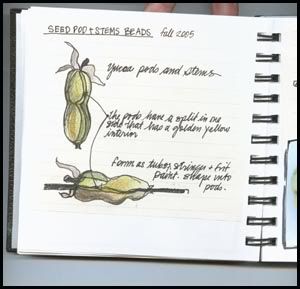 SEED POD + STEMS BEADS Fall 2005
Yucca pods and stems
the pods have a split in one
side that has a golden yellow
interior
form as tubes, stringer + frit
paint. shape into
pods.